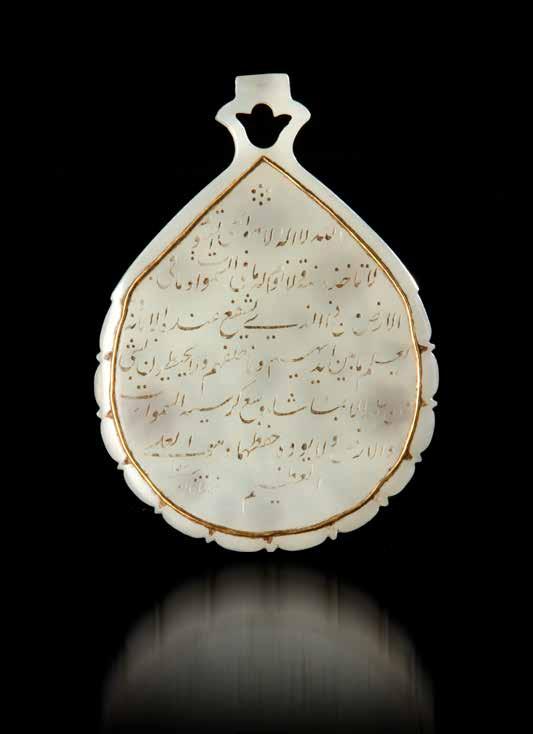 الله لا اله الا هو الحی القیوم
لا تاخذه سنة و لا نوم له ما فی السموات و ما فی
الارض من ذا الذی یشفع عنده الا باذنه
یعلم ما بین ایدیهم و ما خلفهم و لا یحیطون بشی
من علمه الا بما شاء وسع کرسیه السموات
و الارض و لا یؤده حفظهما و هو العلی
العظیم